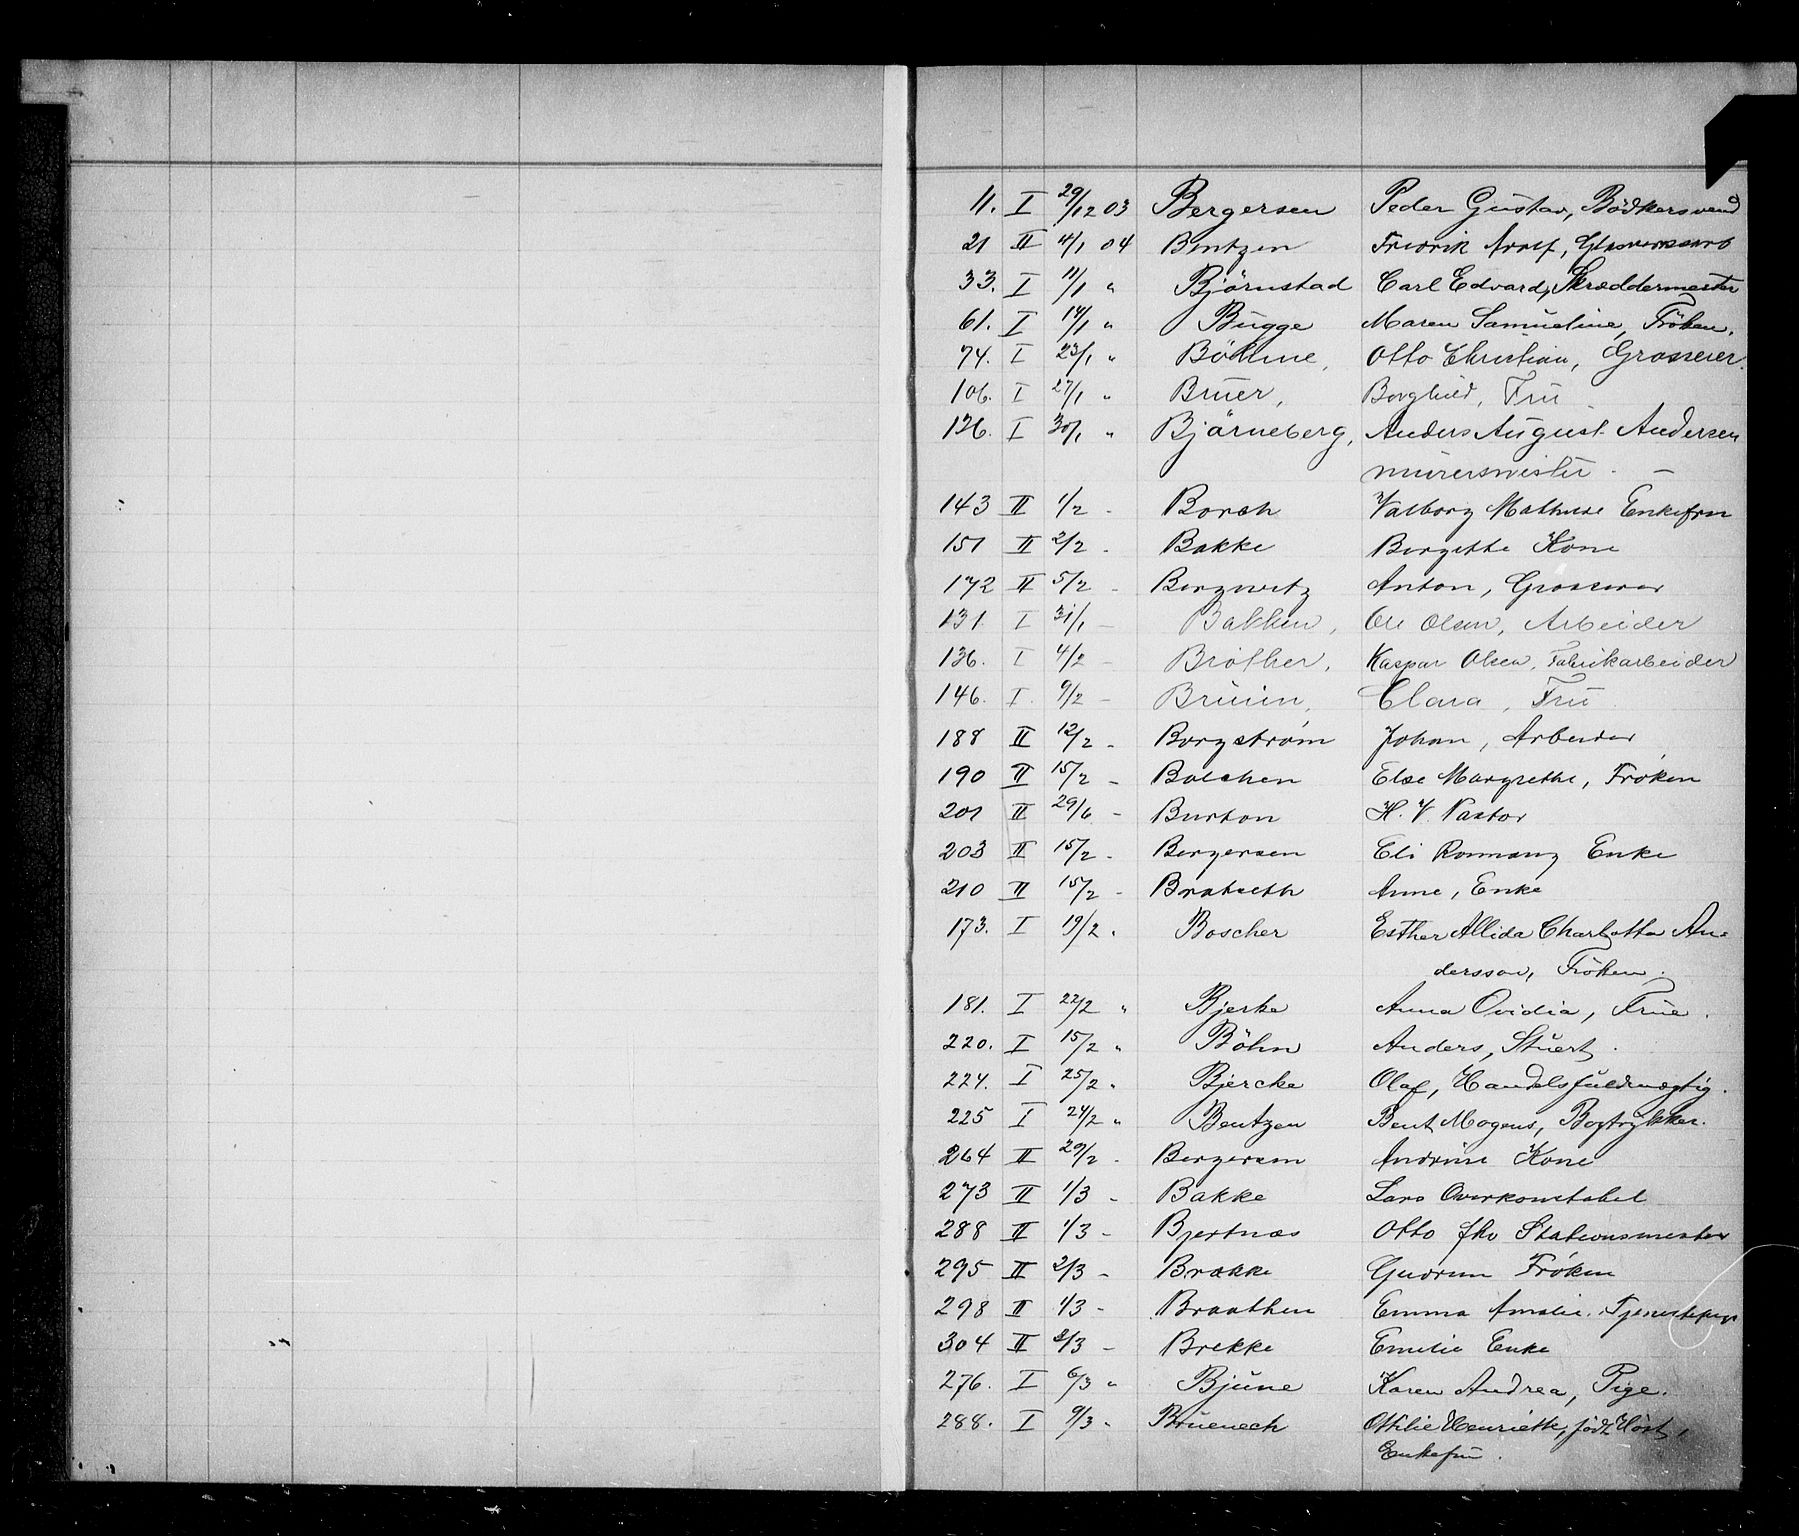 11. I 29/12 03 Bergersen Peder Gustav, Bødkersvend
21 II 4/1 04 Bentzen Fredrik Adolf, Glasverksarb
33. I 11/1 " Björnstad Carl Edvard, Skræddermester
61. I 14/1 " Bugge Maren Samueline, Fröken.
74. I 23/1 " Böhme, Otto Christian, Grosserer.
106. I 27/1 " Bruer, Borghild, Fru
126. I 30/1 " Bjärneberg, Anders August Andersen
murersmester. —
143 II 1/2 - Borch Valborg Mathilde Enkefru
151 II 2/2 - Bakke Bergitte Kone
172 II 5/2 - Bergwitz Anton, Grosserer
131 I 31/1 — Bakken, Ole Olsen, Arbeider
136. I 4/2 — Bröther, Kaspar Olsen, Fabrikarbeider
146. I. 9/2 — Bruun, Clara, Fru
188 II 12/2 - Borgstrøm Johan, Arbeider
190 II 15/2 - Balchen Else Margrethe, Frøken
201 II 29/6 - Burton H. V. Pastor
203 II 15/2 - Bergersen Eli Enke
210 II 15/2 - Bratseth Anne, Enke
173. I 19/2 " Boscher Esther Allida Charlotta An-
dersson, Fröken.
181. I 22/2 " Bjerke Anna Ovidia, Frue.
220. I 15/2 " Böhn Anders, Stuert.
224. I 25/2 " Bjercke Olaf, Handelsfuldmægtig.
225 I 24/2 " Bentzen Bent Mogens, Bogtrykker.
264 II 29/2 - Bergersen Andrine Kone
273 II 1/3 - Bakke Lars Overkonstabel
288 II 1/3 - Bjertnæs Otto fhv Stationsmester
295 II 2/3 - Brække Gudrun Frøken
298 II 1/3 - Braathen Emma Amalie. Tjenestepige
304 II 2/3 - Brekke Emilie Enke
276. I 6/3 " Bjune Karen Andrea, Pige.
288. I 9/3 " Bruenech Ottilie Henriette, född Höst,
Enkefru.